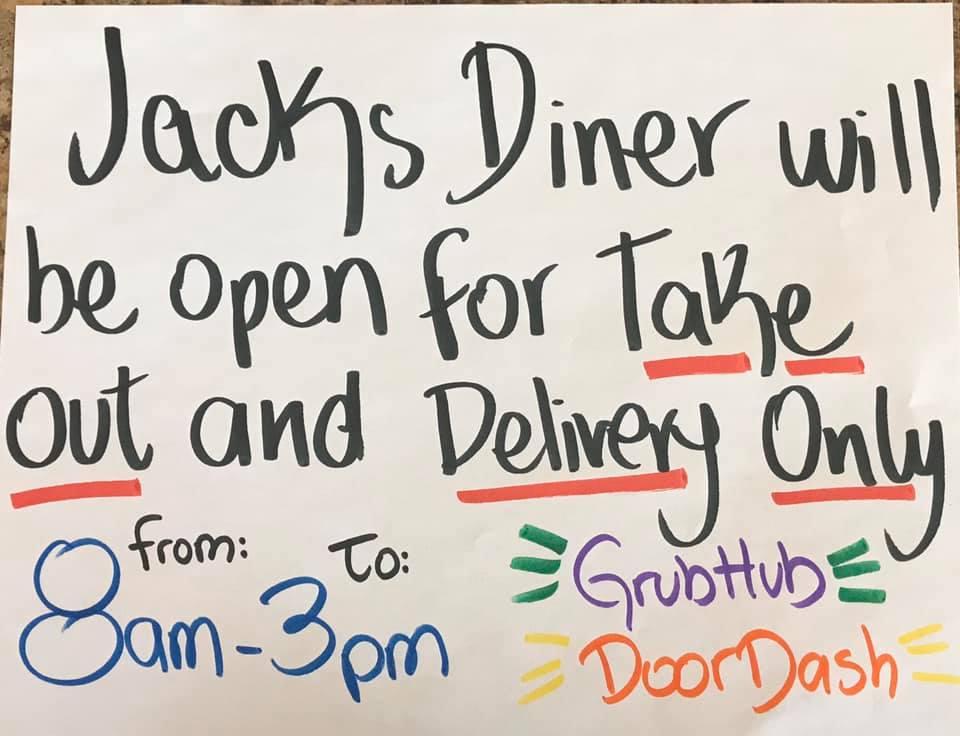 Jacks Diner will
be open for Take
out and Delivery Only
from: To:
8am-3pm
GrubHub
DoorDash